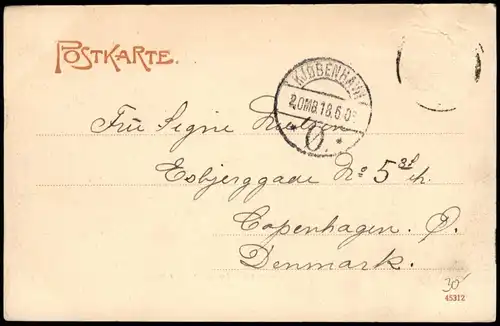 POSTKARTE.
KJØBENHAVN
2.OMB. 18.6.0
* Ø. *
Fru Signe
Esbjerggade No 5 3d th.
Copenhagen. Ø.
Denmark.
30
45312